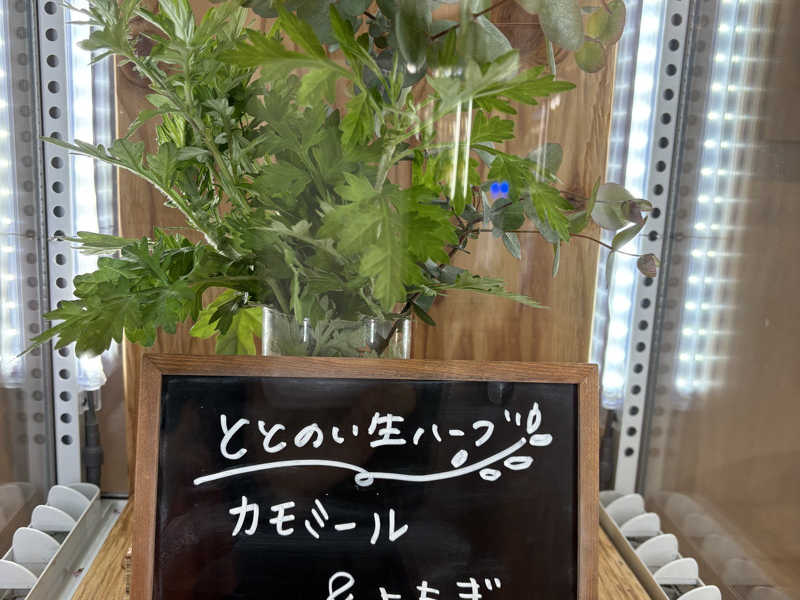 ととのい生ハーブ
カモミール
&よもぎ